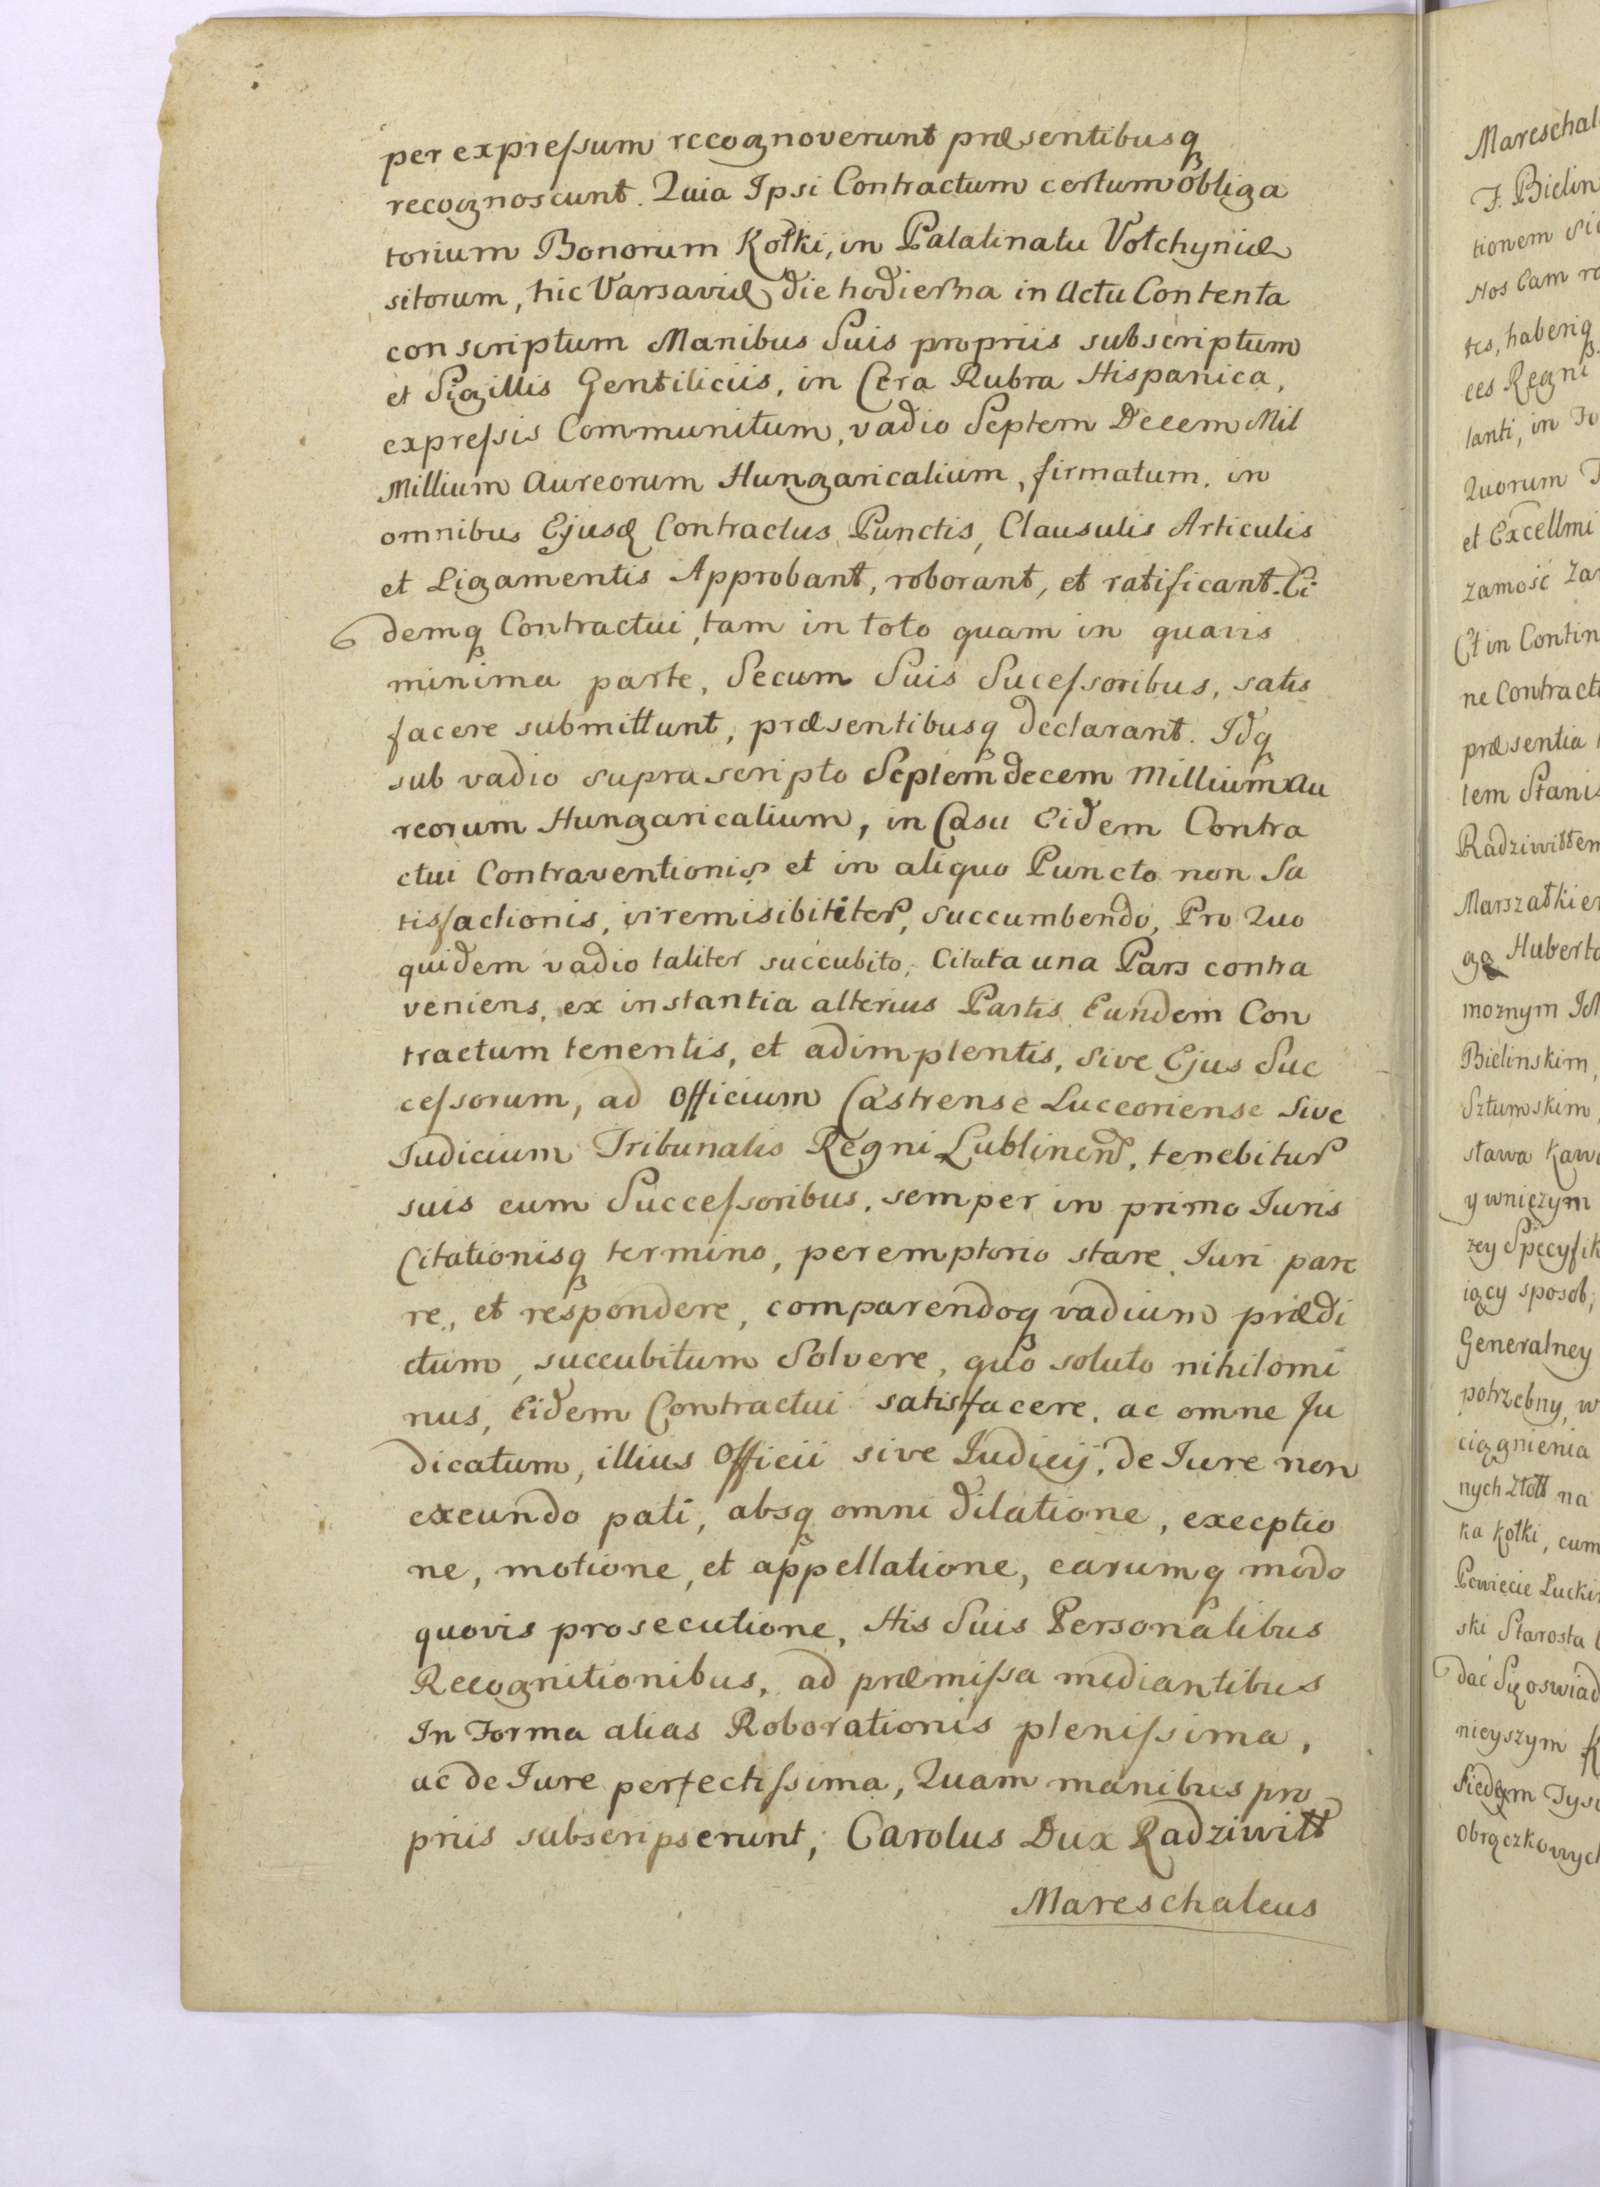 per expressum recognoverunt præsentibusq
recognoscunt. Quia Ipsi Contractum certum obliga
torium Bonorum Kołki, in Palatinatu Vołchyniæ
sitorum, hic Varsaviæ die hodierna in Actu Contenta
conscriptum Manibus Suis propriis subscriptum
et Sigillis Gentiliciis, in Cera Rubra Hispanica,
expressis Communitum, vadio Septem Decem Mil
Millium Aureorum Hungaricalium, firmatum. in
omnibus Ejusd Contractus Punctis, Clausulis Articulis
et Ligamentis Approbant, roborant, et ratificant. Ei
demq Contractui, tam in toto quam in quavis
minima parte, Secum Suis Sucessoribus, satis
facere submittunt, præsentibusq declarant. Idq
sub vadio suprascripto Septem decem Millium Au
reorum Hungaricalium, in Casu Eidem Contra
ctui Contraventionis et in aliquo Puncto non Sa
tisfactionis, irremisibiliter, succumbendo, Pro Quo
quidem vadio taliter succubito, Citata una Pars contra
veniens, ex instantia alterius Partis Eundem Con
tractum tenentis, et adimplentis, sive Ejus Suc
cessorum, ad Officium Castrense Luceoriense Sive
Judicium Tribunalis Regni Lublinen, tenebitur
suis cum Successoribus, semper in primo Juris
Citationisq termino, peremptorio stare, Juri pare
re, et respondere, comparendoq vadium prædi
ctum, succubitum Solvere, quo soluto nihilomi
nus, Eidem Contractui satisfacere, ac omne Ju
dicatum, illius Officii sive Judicij, de Jure non
exeundo pati, absq omni dilatione, execptio
ne, motione, et appellatione, earumq modo
quovis prosecutione, His Suis Personalibus
Recognitionibus, ad præmissa mediantibus
In Forma alias Roborationis plenissima,
ac de Jure perfectissima, Quam manibus pro
priis subscripserunt, Carolus Dux Radziwiłł
Mareschalcus
Mareschal
F. Bielin
tionem
Nos Cam
tes, haberiq
ces Regni
lanti, in
Quorum
et Excellmi
Zamość
Et in Contin
ne Contract
præsentia
lem Stanis
Radziwiłłem
Marszałkie
Huberto
moznym
Bielinskim,
Sztumskim,
stawa Kaw
y wnięzym
rey Specyfik
iący sposob;
Generalney
potrzebny, w
ciągnienia
nych Złott na
ka Kołki, cum
Powiecie Lucki
ski Starosta
dać Się oswiad
nieyszym
Siedgm Tysi
Obrączkowych